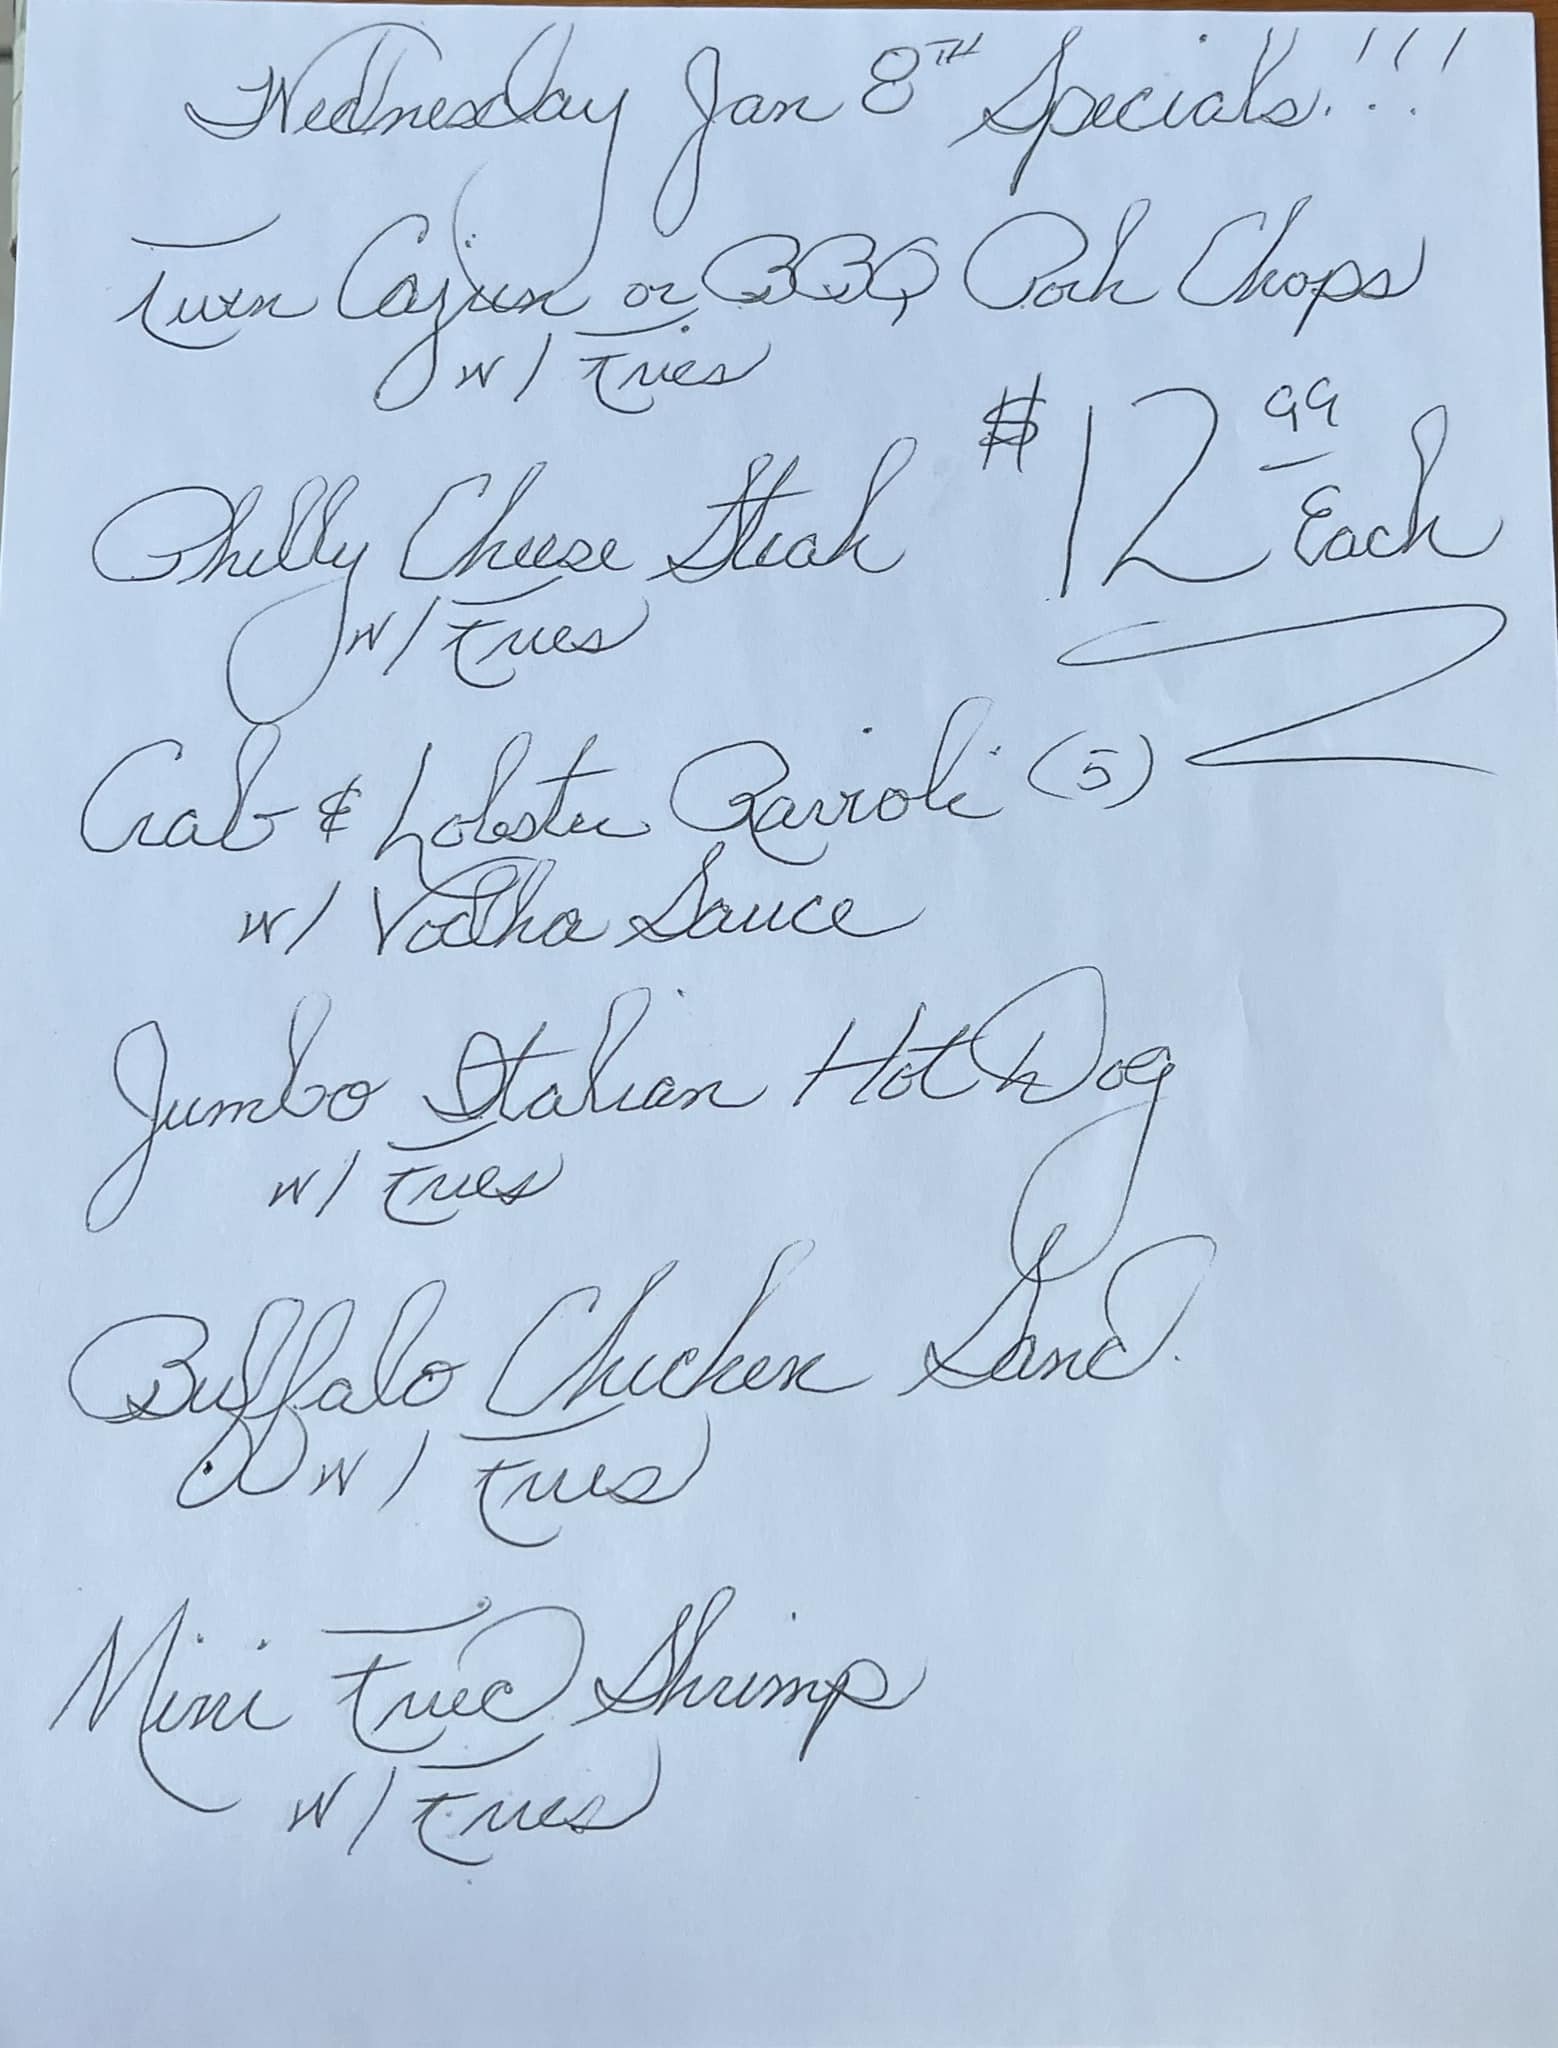 Wednesday Jan 8TH Specials!!!
Twin Cajun or BBQ Pork Chops
w/ Fries
$12.99 Each
Philly Cheese Steak
w/ Fries
Crab & Lobster Ravioli (5)
w/ Vodka Sauce
Jumbo Italian Hot Dog
w/ Fries
Buffalo Chicken Sand.
w/ Fries
Mini Fried Shrimp
w/ Fries